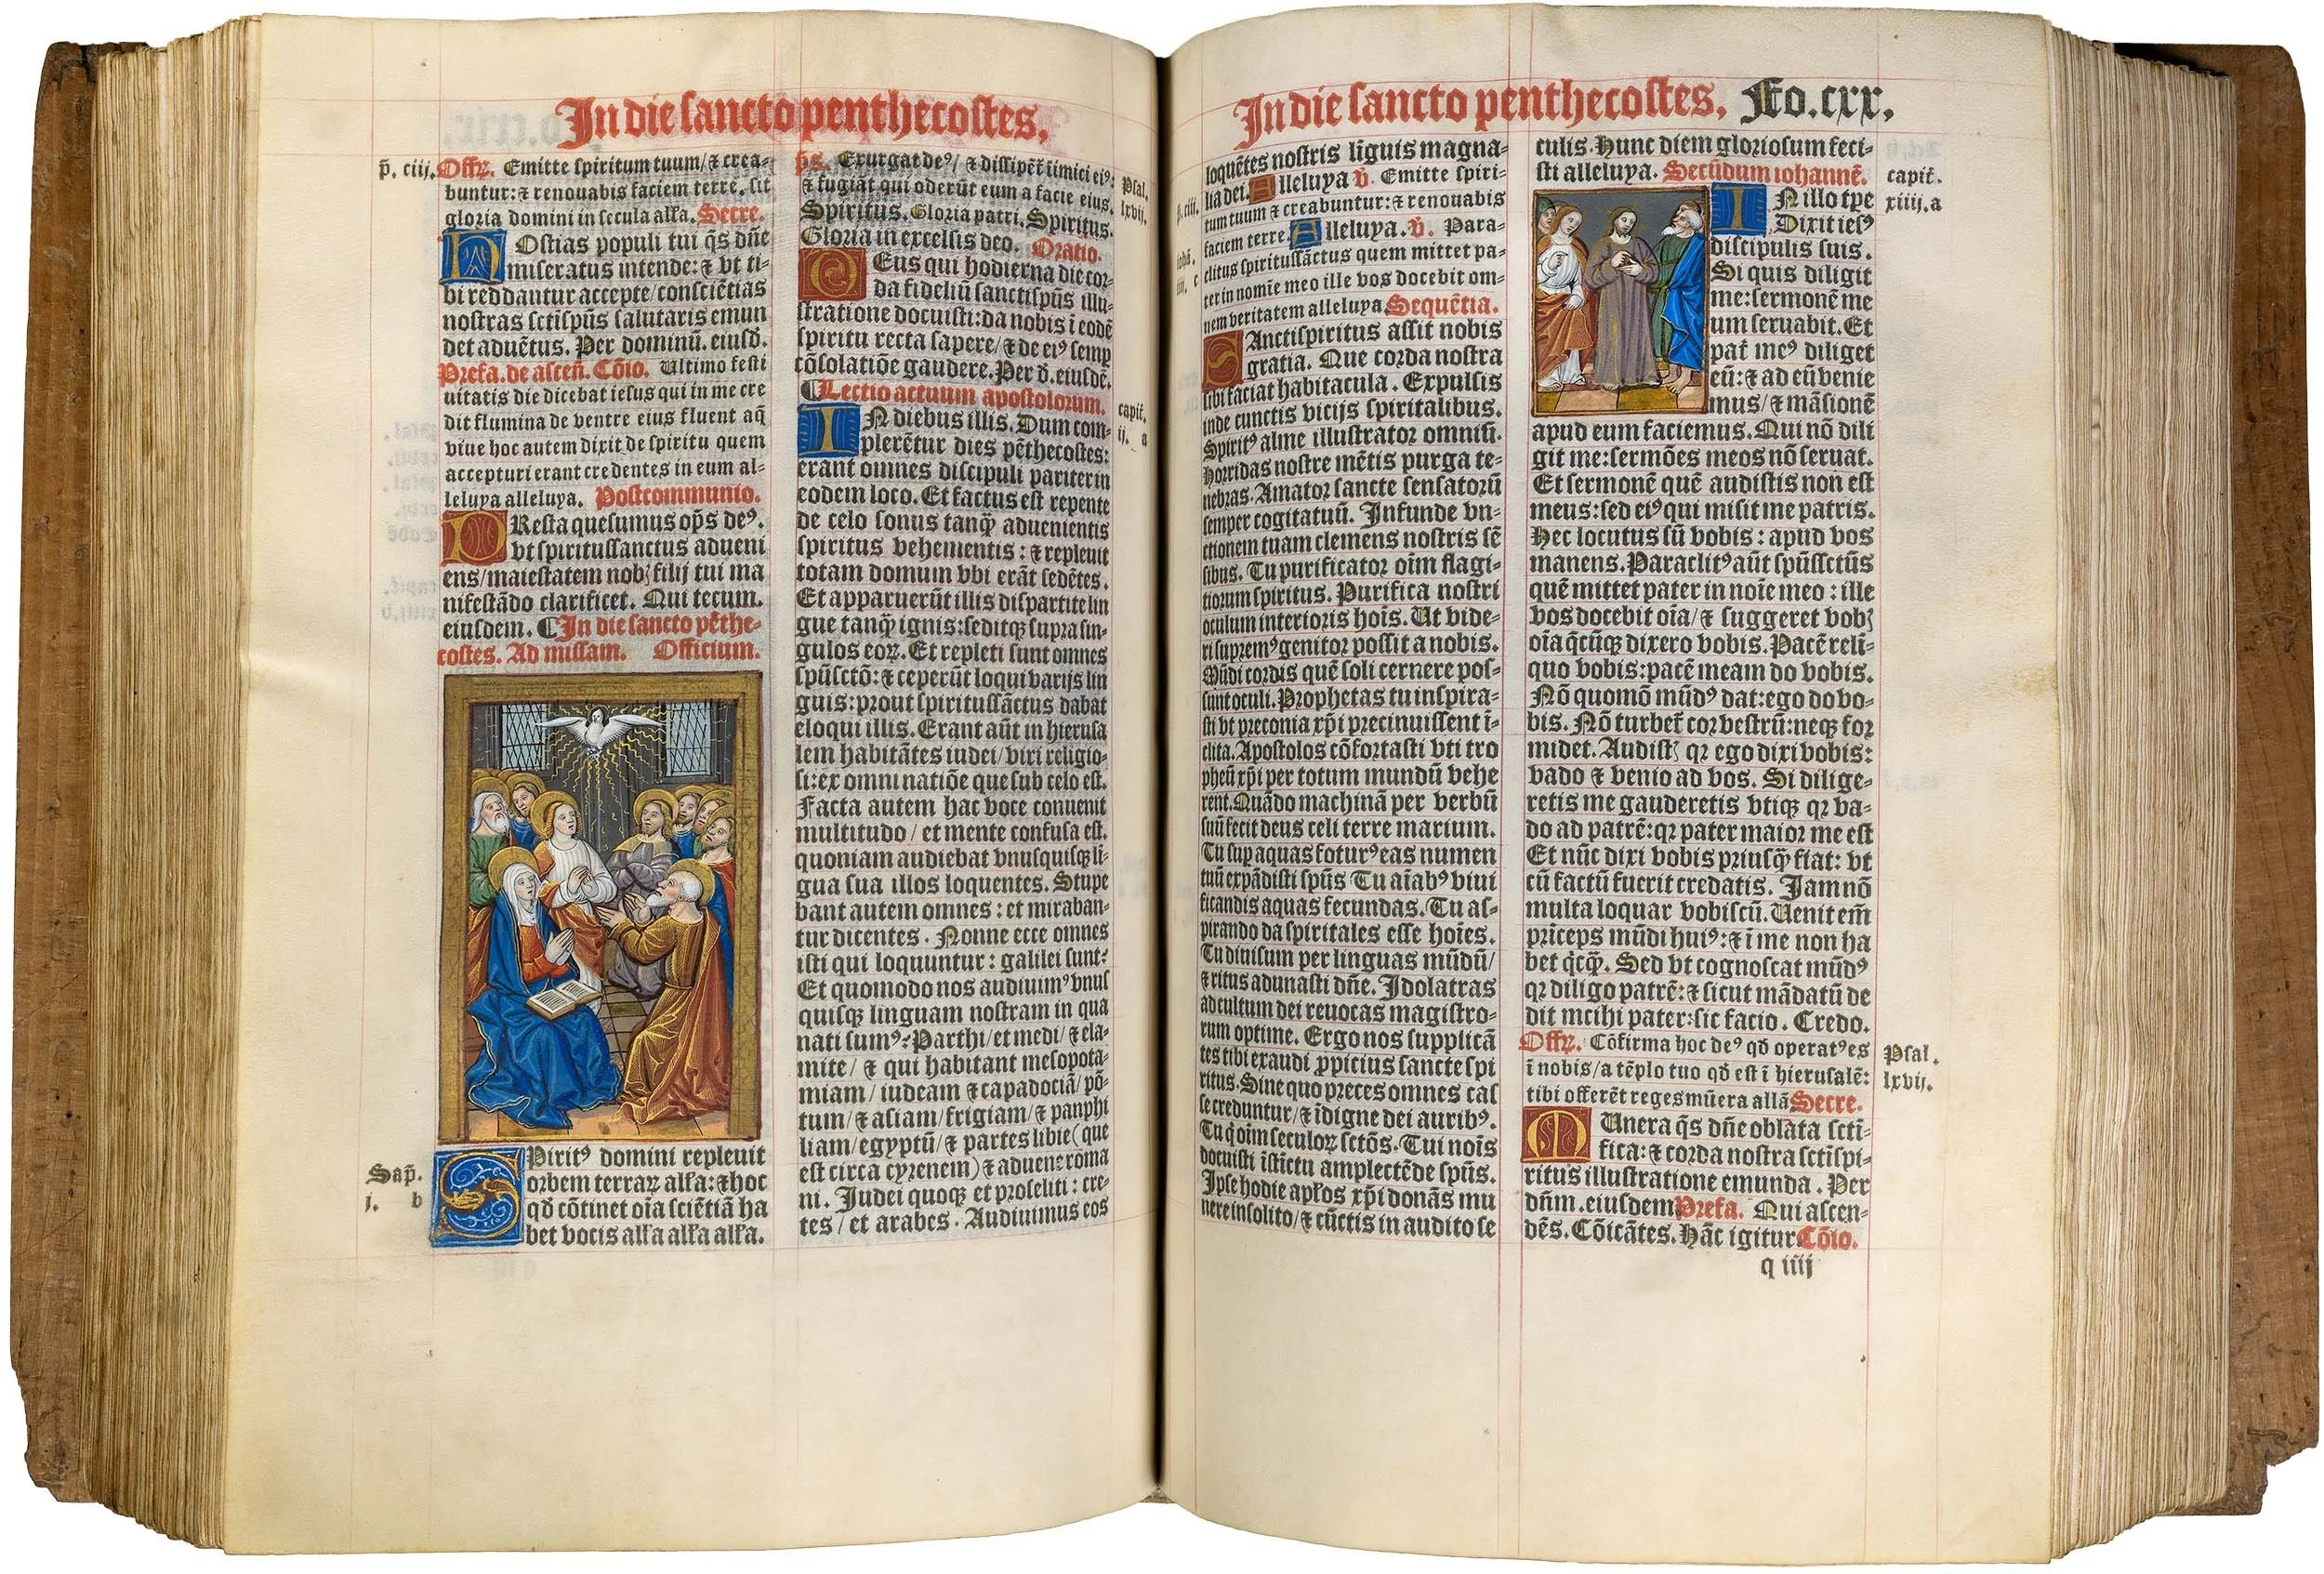 In die sancto penthecostes.
p̄. ciij.
Offr̄. Emitte spiritum tuum/⁊ crea-
buntur:⁊ renouabis faciem terre. sit
gloria domini in secula alľa. Secre.
HOstias populi tui q̄s dn̄e
miseratus intende:⁊ vt ti-
bi reddantur accepte/consciētias
nostras sctīspūs salutaris emun
det aduētus. Per dominū. eiusd̄.
Prefa. de ascen̄. Cōio. Ultimo festi
uitatis die dicebat iesus qui in me cre
dit flumina de ventre eius fluent aq̄
viue hoc autem dixit de spiritu quem
accepturi erant credentes in eum al-
leluya alleluya. Postcommunio.
PResta quesumus op̄s deꝰ.
vt spiritussanctus adueni
ens/maiestatem nobꝫ filij tui ma
nifestādo clarificet. Qui tecum.
eiusdem. ¶In die sancto pēthe-
costes. Ad missam. Officium.
Sap̄.
j. b
SPiritꝰ domini repleuit
orbem terraꝝ alľa:⁊ hoc
qđ cōtinet oīa sciētiā ha
bet vocis alľa alľa alľa.
p̄s. Exurgat deꝰ/ ⁊ dissipēt̄ iimici eiꝰ:
⁊ fugiāt qui oderūt eum a facie eius.
Psal.
lxvij.
Spiritus. Gloria patri. Spiritus.
Gloria in excelsis deo. Oratio.
DEus qui hodierna die cor-
da fideliū sanctispūs illu-
stratione docuisti:da nobis ī eodē
spiritu recta sapere/⁊ de eiꝰ semp
cōsolatiōe gaudere. Per d̄. eiusdē.
¶Lectio actuum apostolorum.
capit̄.
ij. a
IN diebus illis. Dum com-
plerētur dies pēthecostes:
erant omnes discipuli pariter in
eodem loco. Et factus est repente
de celo sonus tanꝙ̄ aduenientis
spiritus vehementis:⁊ repleuit
totam domum vbi erāt sedētes.
Et apparuerūt illis dispartite lin
gue tanꝙ̄ ignis:seditqꝫ supra sin-
gulos eoꝝ. Et repleti sunt omnes
spūsctō:⁊ ceperūt loqui varijs lin
guis:prout spiritussāctus dabat
eloqui illis. Erant aūt in hierusa
lem habitātes iudei/viri religio-
si:ex omni natiōe que sub celo est.
Facta autem hac voce conuenit
multitudo/et mente confusa est.
quoniam audiebat vnusquisqꝫ li-
gua sua illos loquentes. Stupe
bant autem omnes:et miraban-
tur dicentes. Nonne ecce omnes
isti qui loquuntur:galilei sunt?
Et quomodo nos audiuimꝰ vnus
quisqꝫ linguam nostram in qua
nati sumꝰ? Parthi/et medi/⁊ ela-
mite/⁊ qui habitant mesopota-
miam/iudeam ⁊ capadociā/pō-
tum/⁊ asiam/frigiam/⁊ panphi
liam/egyptū/⁊ partes libie(que
est circa cyrenem)⁊ aduene roma
ni. Judei quoqꝫ et proseliti:cre-
tes/et arabes. Audiuimus eos
In die sancto penthecostes. Fo.cxx.
loquētes nostris līguis magna-
lia dei. Alleluya ꝟ. Emitte spiri-
tum tuum ⁊ creabuntur:⁊ renouabis
faciem terre. Alleluya. ꝟ. Para-
clitus spiritussāctus quem mittet pa-
ter in nomīe meo ille vos docebit om-
nem veritatem alleluya Sequētia.
SAnctispiritus assit nobis
gratia. Que corda nostra
sibi faciat habitacula. Expulsis
inde cunctis vicijs spiritalibus.
Spiritꝰ alme illustrator omniū.
Horridas nostre mētis purga te-
nebras. Amator sancte sensatorū
semper cogitatuū. Infunde vn-
ctionem tuam clemens nostris sē
sibus. Tu purificator oīm flagi-
tiorum spiritus. Purifica nostri
oculum interioris hoīs. Ut vide-
ri supremꝰ genitor possit a nobis.
Mūdi cordis quē soli cernere pos-
sunt oculi. Prophetas tu inspira-
sti vt preconia xp̄i precinuissent ī-
clita. Apostolos cōfortasti vti tro
pheū xp̄i per totum mundū vehe
rent. Quādo machinā per verbū
suū fecit deus celi terre marium.
Tu sup aquas foturꝰ eas numen
tuū expādisti spūs Tu aīabꝰ viui
ficandis aquas fecundas. Tu as-
pirando da spiritales esse hoīes.
Tu diuisum per linguas mūdū/
⁊ ritus adunasti dn̄e. Idolatras
ad cultum dei reuocas magistro-
rum optime. Ergo nos supplicā
tes tibi exaudi ꝓpicius sancte spi
ritus. Sine quo preces omnes cas
se creduntur/⁊ īdigne dei auribꝰ.
Tu q̇ oīm seculoꝝ sctōs. Tui noīs
docuisti īstictu amplectēde spūs.
Ipse hodie apľos xp̄i donās mu
nere insolito/⁊ cūctis in audito se
culis. Hunc diem gloriosum feci-
sti alleluya. Secūdum iohannē.
capit̄.
xiiij. a
IN illo tp̄e
Dixit iesꝰ
discipulis suis.
Si quis diligit
me:sermonē me
um seruabit. Et
pat̄ meꝰ diliget
eū:⁊ ad eū venie
mus/⁊ māsionē
apud eum faciemus. Qui nō dili
git me:sermōes meos nō seruat.
Et sermonē quē audistis non est
meus:sed eiꝰ qui misit me patris.
Hec locutus sū vobis:apud vos
manens. Paraclitꝰ aūt spūssctūs
quē mittet pater in noīe meo:ille
vos docebit oīa/⁊ suggeret vobꝫ
oīa q̄cūqꝫ dixero vobis. Pacē reli-
quo vobis:pacē meam do vobis.
Nō quomō mūdꝰ dat:ego do vo-
bis. Nō turbet̄ cor vestrū:neqꝫ for
midet. Audistꝫ qꝛ ego dixi vobis:
vado ⁊ venio ad vos. Si dilige-
retis me gauderetis vtiqꝫ qꝛ va-
do ad patrē:qꝛ pater maior me est
Et nūc dixi vobis priusꝙ̄ fiat:vt
cū factū fuerit credatis. Jam nō
multa loquar vobiscū. Uenit em̄
prīceps mūdi huiꝰ:⁊ ī me non ha
bet q̇cꝙ̄. Sed vt cognoscat mūdꝰ
qꝛ diligo patrē:⁊ sicut mādatū de
dit mihi pater:sic facio. Credo.
Offr̄. Cōfirma hoc deꝰ qđ operatꝰ es
ī nobis/a tēplo tuo qđ est ī hierusalē:
tibi offerēt reges mūera allā Secre.
Psal.
lxvij.
MUnera q̄s dn̄e oblata sctī-
fica:⁊ corda nostra sctīspi-
ritus illustratione emunda. Per
dn̄m. eiusdem Prefa. Qui ascen-
dēs. Cōicātes. Hāc igitur Cōio.
q iiij